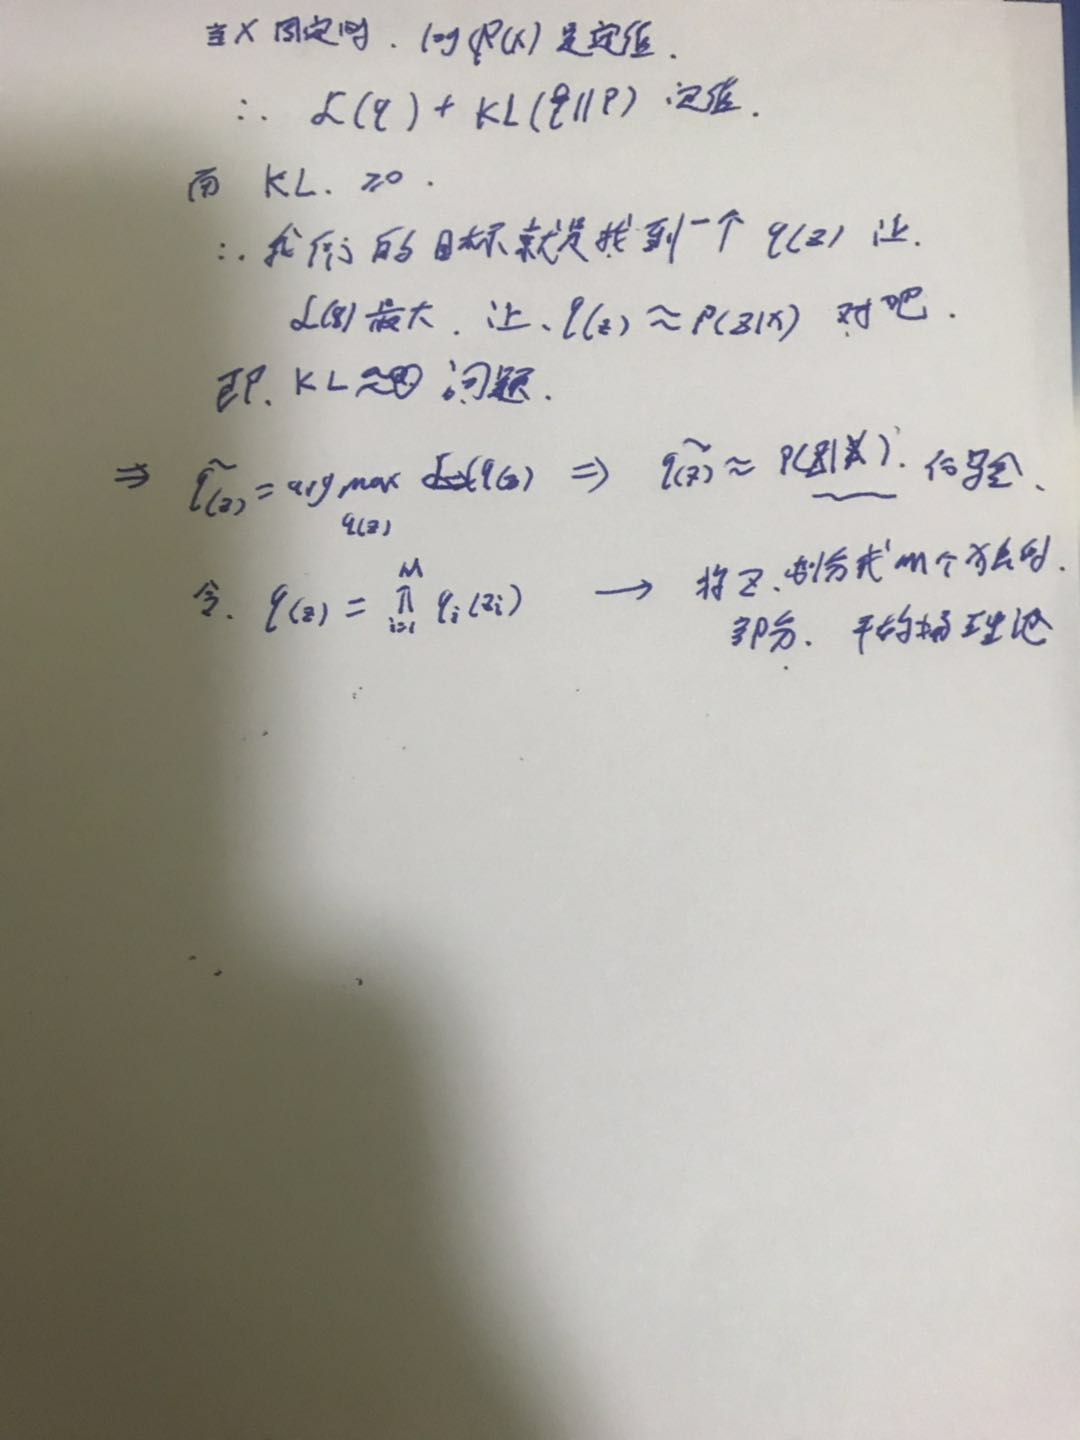 当X固定时. log P(X) 是定值.
∴ L(q) + KL(q||P) 定值.
而 KL. ≥0.
∴ 我们的目标就是找到一个 q(z) 让.
L(q) 最大. 让. q(z) ≈ P(Z|X) 对吧.
即. KL≈0 问题.
⇒ q̃(z) = arg max L(q(z)) ⇒ q̃(z) ≈ P(Z|X).
q(z)
令. q(z) = ∏ᵢ₌₁ᴹ qᵢ(zᵢ) → 将Z.划分成M个独立的.
部分. 平均场理论